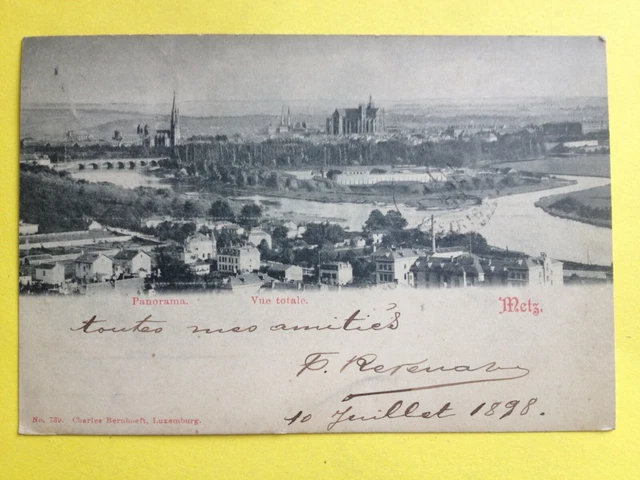 Panorama. Vue totale. Metz.
toutes mes amitiés
10 Juillet 1898.
No. 732. Charles Bernhoeft, Luxemburg.